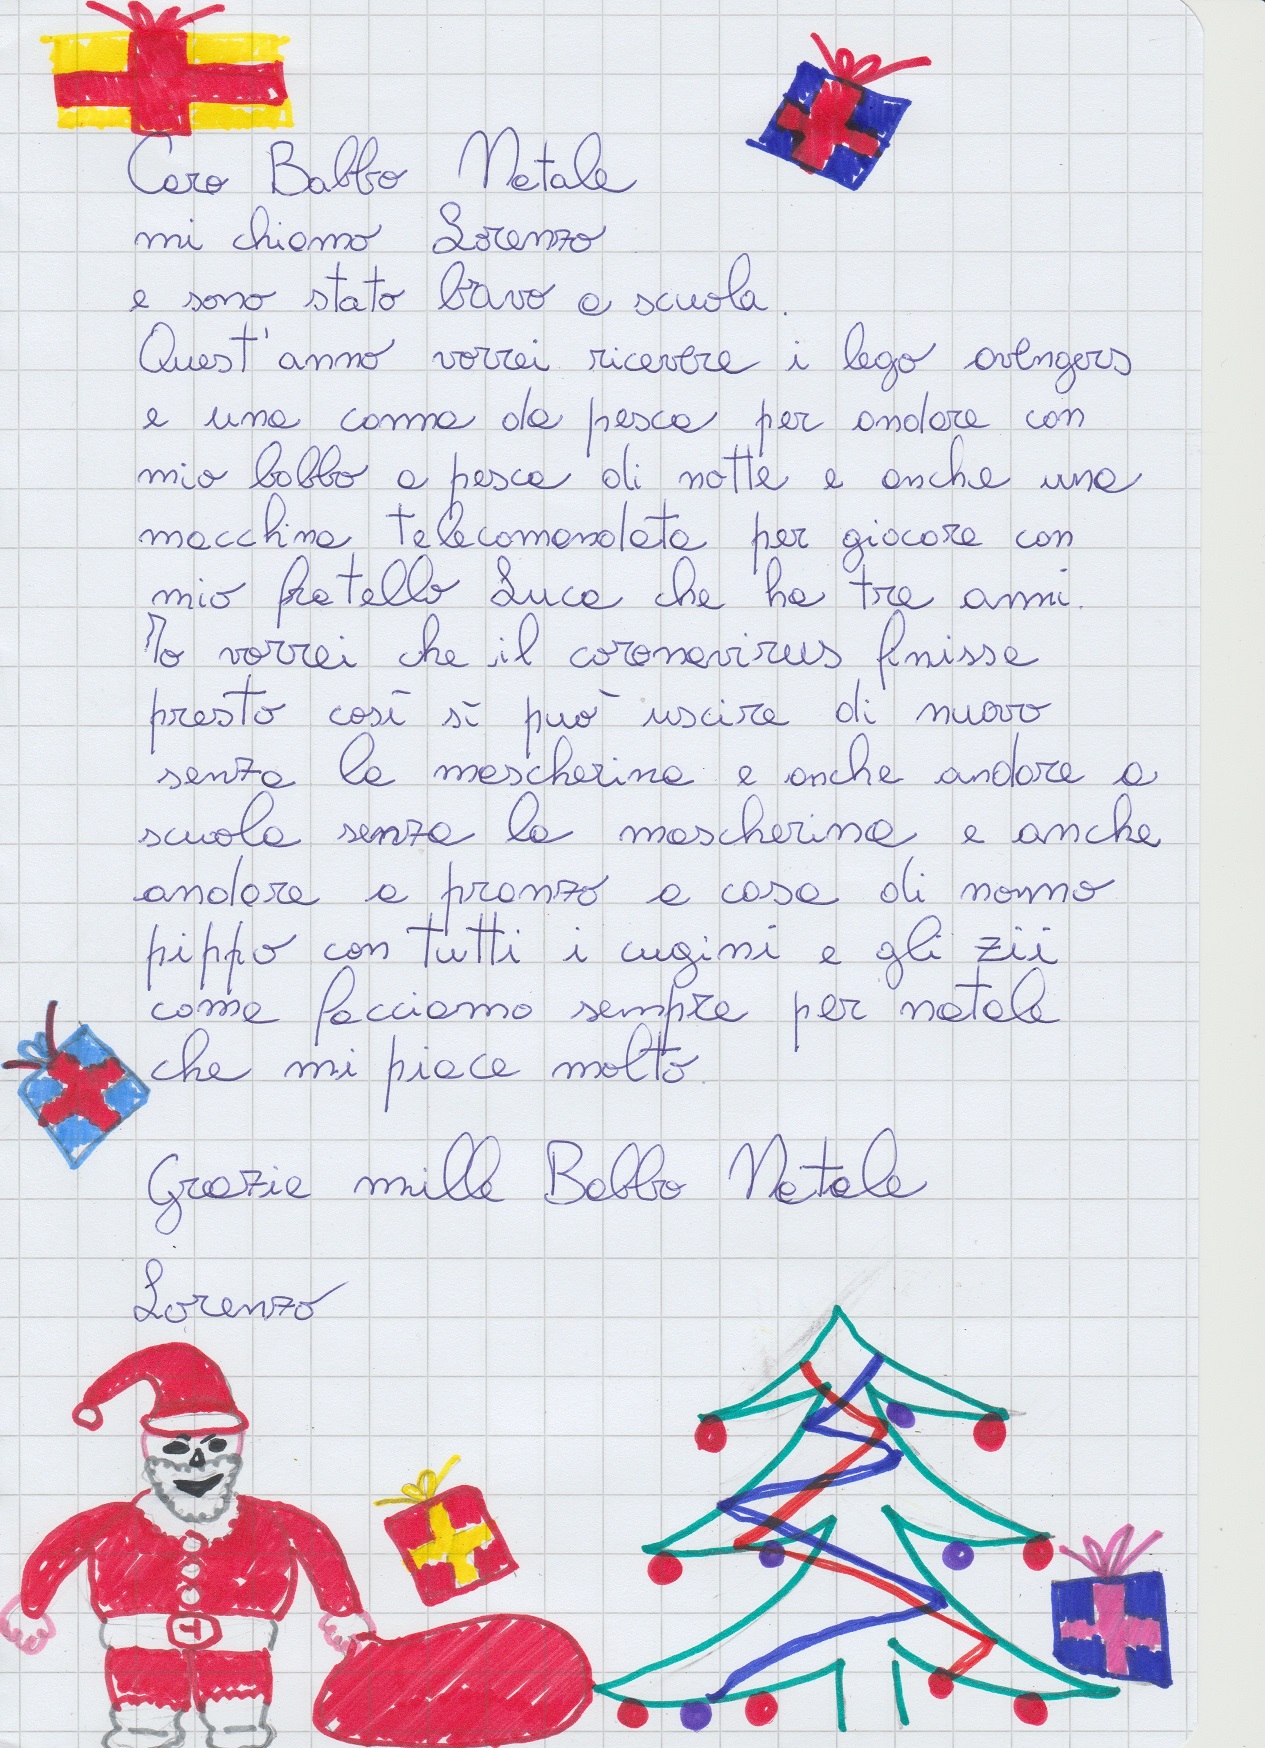 Caro Babbo Natale
mi chiamo Lorenzo
e sono stato bravo a scuola.
Quest'anno vorrei ricevere i lego avengers
e una canna da pesca per andare con
mio babbo a pesca di notte e anche una
macchina telecomandata per giocare con
mio fratello Luca che ha tre anni.
Io vorrei che il coronavirus finisse
presto così sì può uscire di nuovo
senza la mascherina e anche andare a
scuola senza la mascherina e anche
andare a pranzo a casa di nonno
pippo con tutti i cugini e gli zii
come facciamo sempre per natale
che mi piace molto.
Grazie mille Babbo Natale
Lorenzo